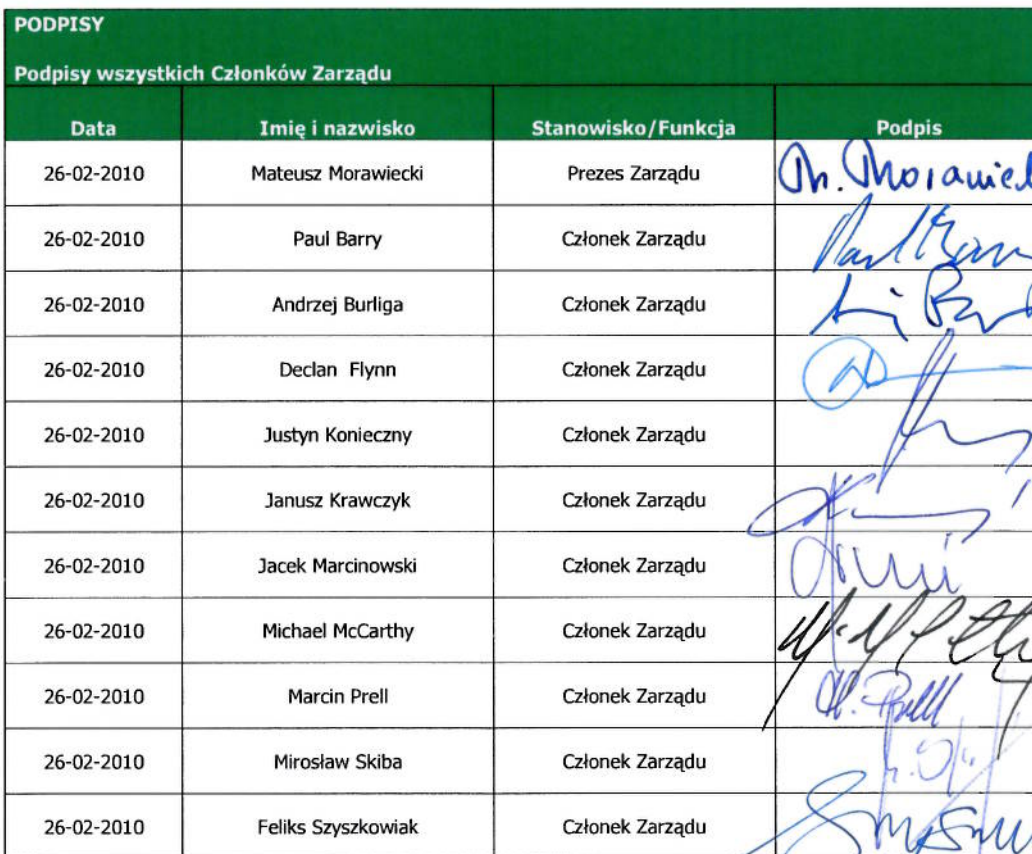 PODPISY
Podpisy wszystkich Członków Zarządu
Data Imię i nazwisko Stanowisko/Funkcja Podpis
26-02-2010 Mateusz Morawiecki Prezes Zarządu
26-02-2010 Paul Barry Członek Zarządu
26-02-2010 Andrzej Burliga Członek Zarządu
26-02-2010 Declan Flynn Członek Zarządu
26-02-2010 Justyn Konieczny Członek Zarządu
26-02-2010 Janusz Krawczyk Członek Zarządu
26-02-2010 Jacek Marcinowski Członek Zarządu
26-02-2010 Michael McCarthy Członek Zarządu
26-02-2010 Marcin Prell Członek Zarządu M. Prell
26-02-2010 Mirosław Skiba Członek Zarządu
26-02-2010 Feliks Szyszkowiak Członek Zarządu